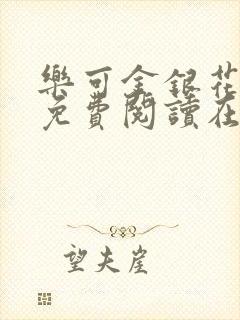 樂可金銀花
免費閱讀在
望夫崖